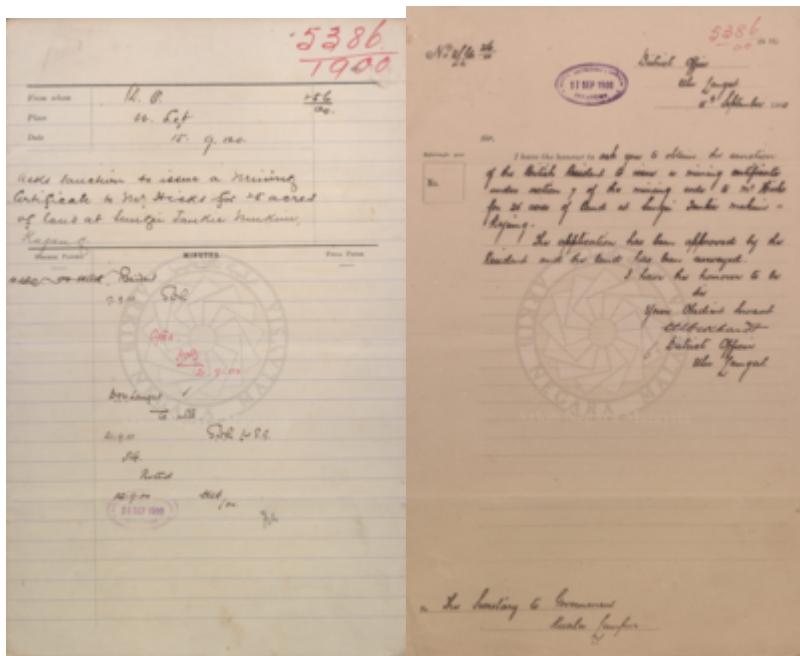 5386
1900
From whom
Place
Date
15. 9. 00.
Asks sanction to issue a Mining
Certificate to Mr. Hicks for 25 acres
of land at Sungei Tankie Mukim,
Kajang
MINUTES.
Resident
ARKIB NEGARA MALAYSIA
Ulu Langat
to note
Noted
24 SEP 1900
5386
District Officer
Ulu Langat
17 SEP 1900
September 1900
Sir,
I have the honour to ask you to obtain the sanction
of the British Resident to issue a mining certificate
under section 7 of the mining code to Mr Hicks
for 25 acres of land at Sungei Tankie mukim -
Kajang.
No.
The application has been approved by the
Resident and the land has been surveyed.
I have the honour to be
Sir
Your Obedient Servant
District Officer
Ulu Langat
ARKIB NEGARA MALAYSIA
The Secretary to Government
Kuala Lumpur